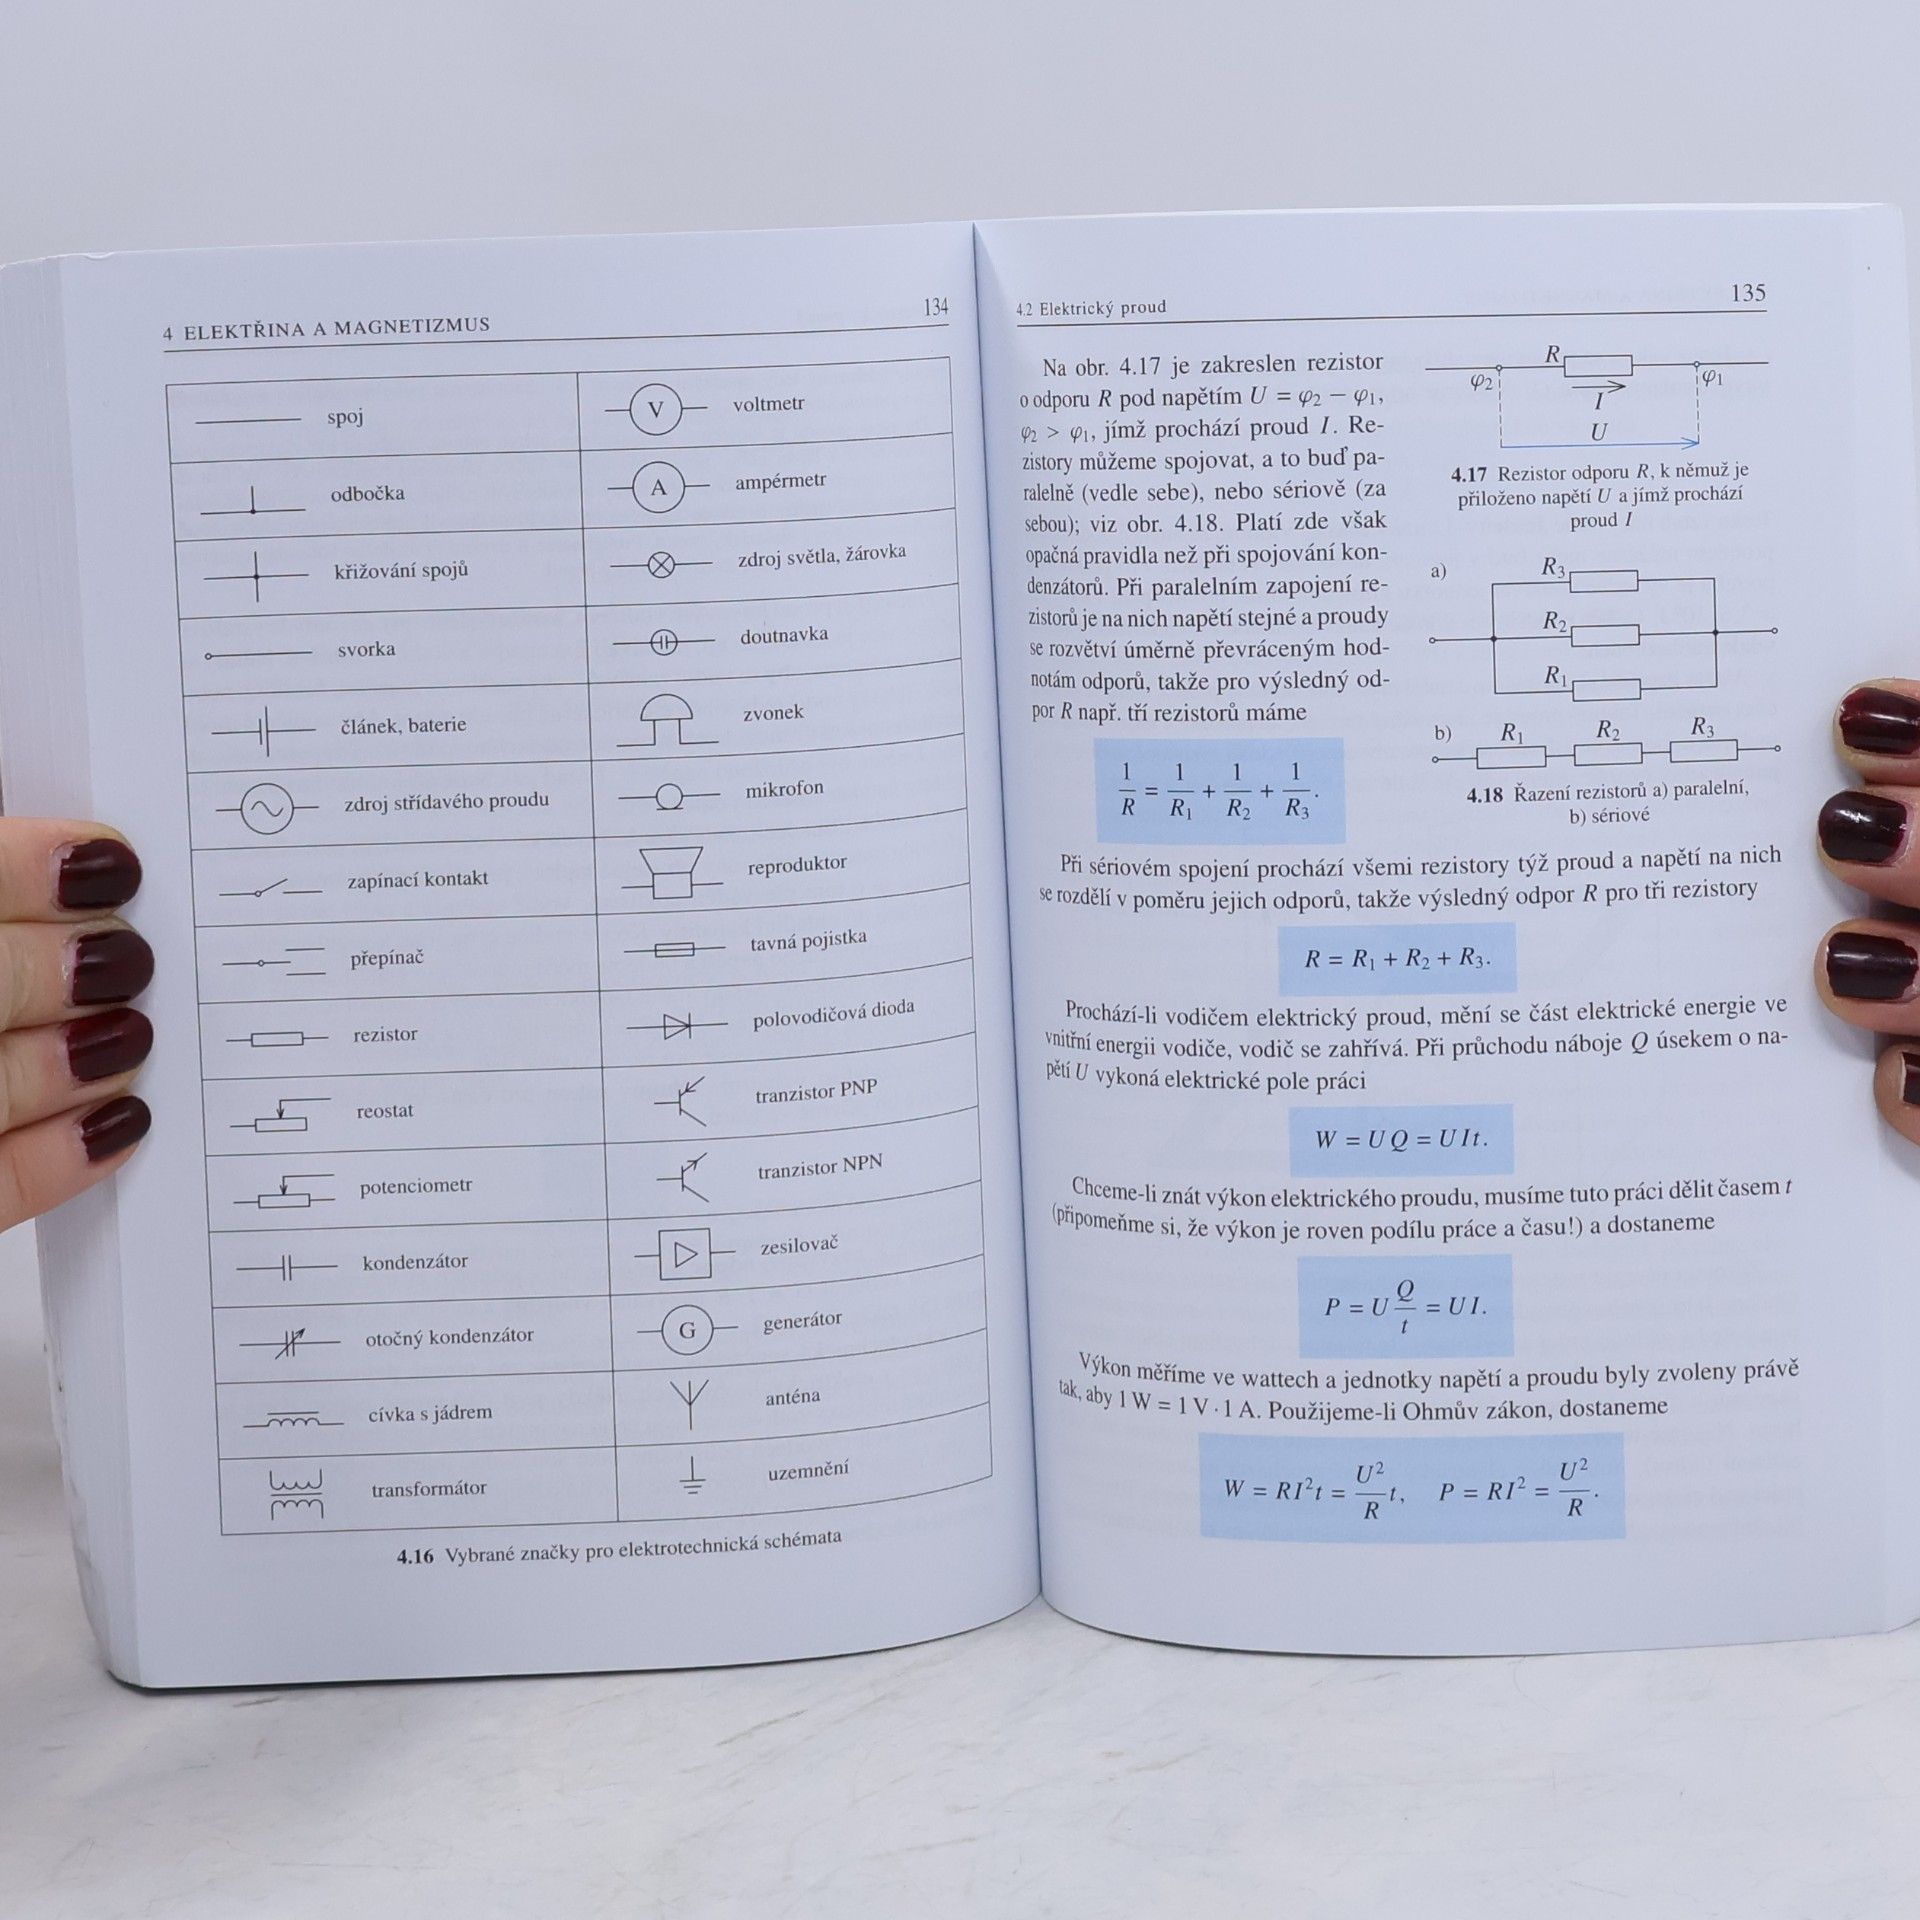 4 ELEKTŘINA A MAGNETIZMUS 134
spoj
odbočka
křižování spojů
svorka
článek, baterie
zdroj střídavého proudu
zapínací kontakt
přepínač
rezistor
reostat
potenciometr
kondenzátor
otočný kondenzátor
cívka s jádrem
transformátor
V voltmetr
A ampérmetr
zdroj světla, žárovka
doutnavka
zvonek
mikrofon
reproduktor
tavná pojistka
polovodičová dioda
tranzistor PNP
tranzistor NPN
zesilovač
G generátor
anténa
uzemnění
4.16 Vybrané značky pro elektrotechnická schémata
4.2 Elektrický proud 135
Na obr. 4.17 je zakreslen rezistor
o odporu R pod napětím U = φ₂ − φ₁,
φ₂ > φ₁, jímž prochází proud I. Re-
zistory můžeme spojovat, a to buď pa-
ralelně (vedle sebe), nebo sériově (za
sebou); viz obr. 4.18. Platí zde však
opačná pravidla než při spojování kon-
denzátorů. Při paralelním zapojení re-
zistorů je na nich napětí stejné a proudy
se rozvětví úměrně převráceným hod-
notám odporů, takže pro výsledný od-
por R např. tří rezistorů máme
1/R = 1/R₁ + 1/R₂ + 1/R₃.
R
φ₂ φ₁
I
U
4.17 Rezistor odporu R, k němuž je
přiloženo napětí U a jímž prochází
proud I
a) R₃
R₂
R₁
b) R₁ R₂ R₃
4.18 Řazení rezistorů a) paralelní,
b) sériové
Při sériovém spojení prochází všemi rezistory týž proud a napětí na nich
se rozdělí v poměru jejich odporů, takže výsledný odpor R pro tři rezistory
R = R₁ + R₂ + R₃.
Prochází-li vodičem elektrický proud, mění se část elektrické energie ve
vnitřní energii vodiče, vodič se zahřívá. Při průchodu náboje Q úsekem o na-
pětí U vykoná elektrické pole práci
W = UQ = UIt.
Chceme-li znát výkon elektrického proudu, musíme tuto práci dělit časem t
(připomeňme si, že výkon je roven podílu práce a času!) a dostaneme
P = U Q/t = UI.
Výkon měříme ve wattech a jednotky napětí a proudu byly zvoleny právě
tak, aby 1 W = 1 V · 1 A. Použijeme-li Ohmův zákon, dostaneme
W = RI²t = U²/R t, P = RI² = U²/R.